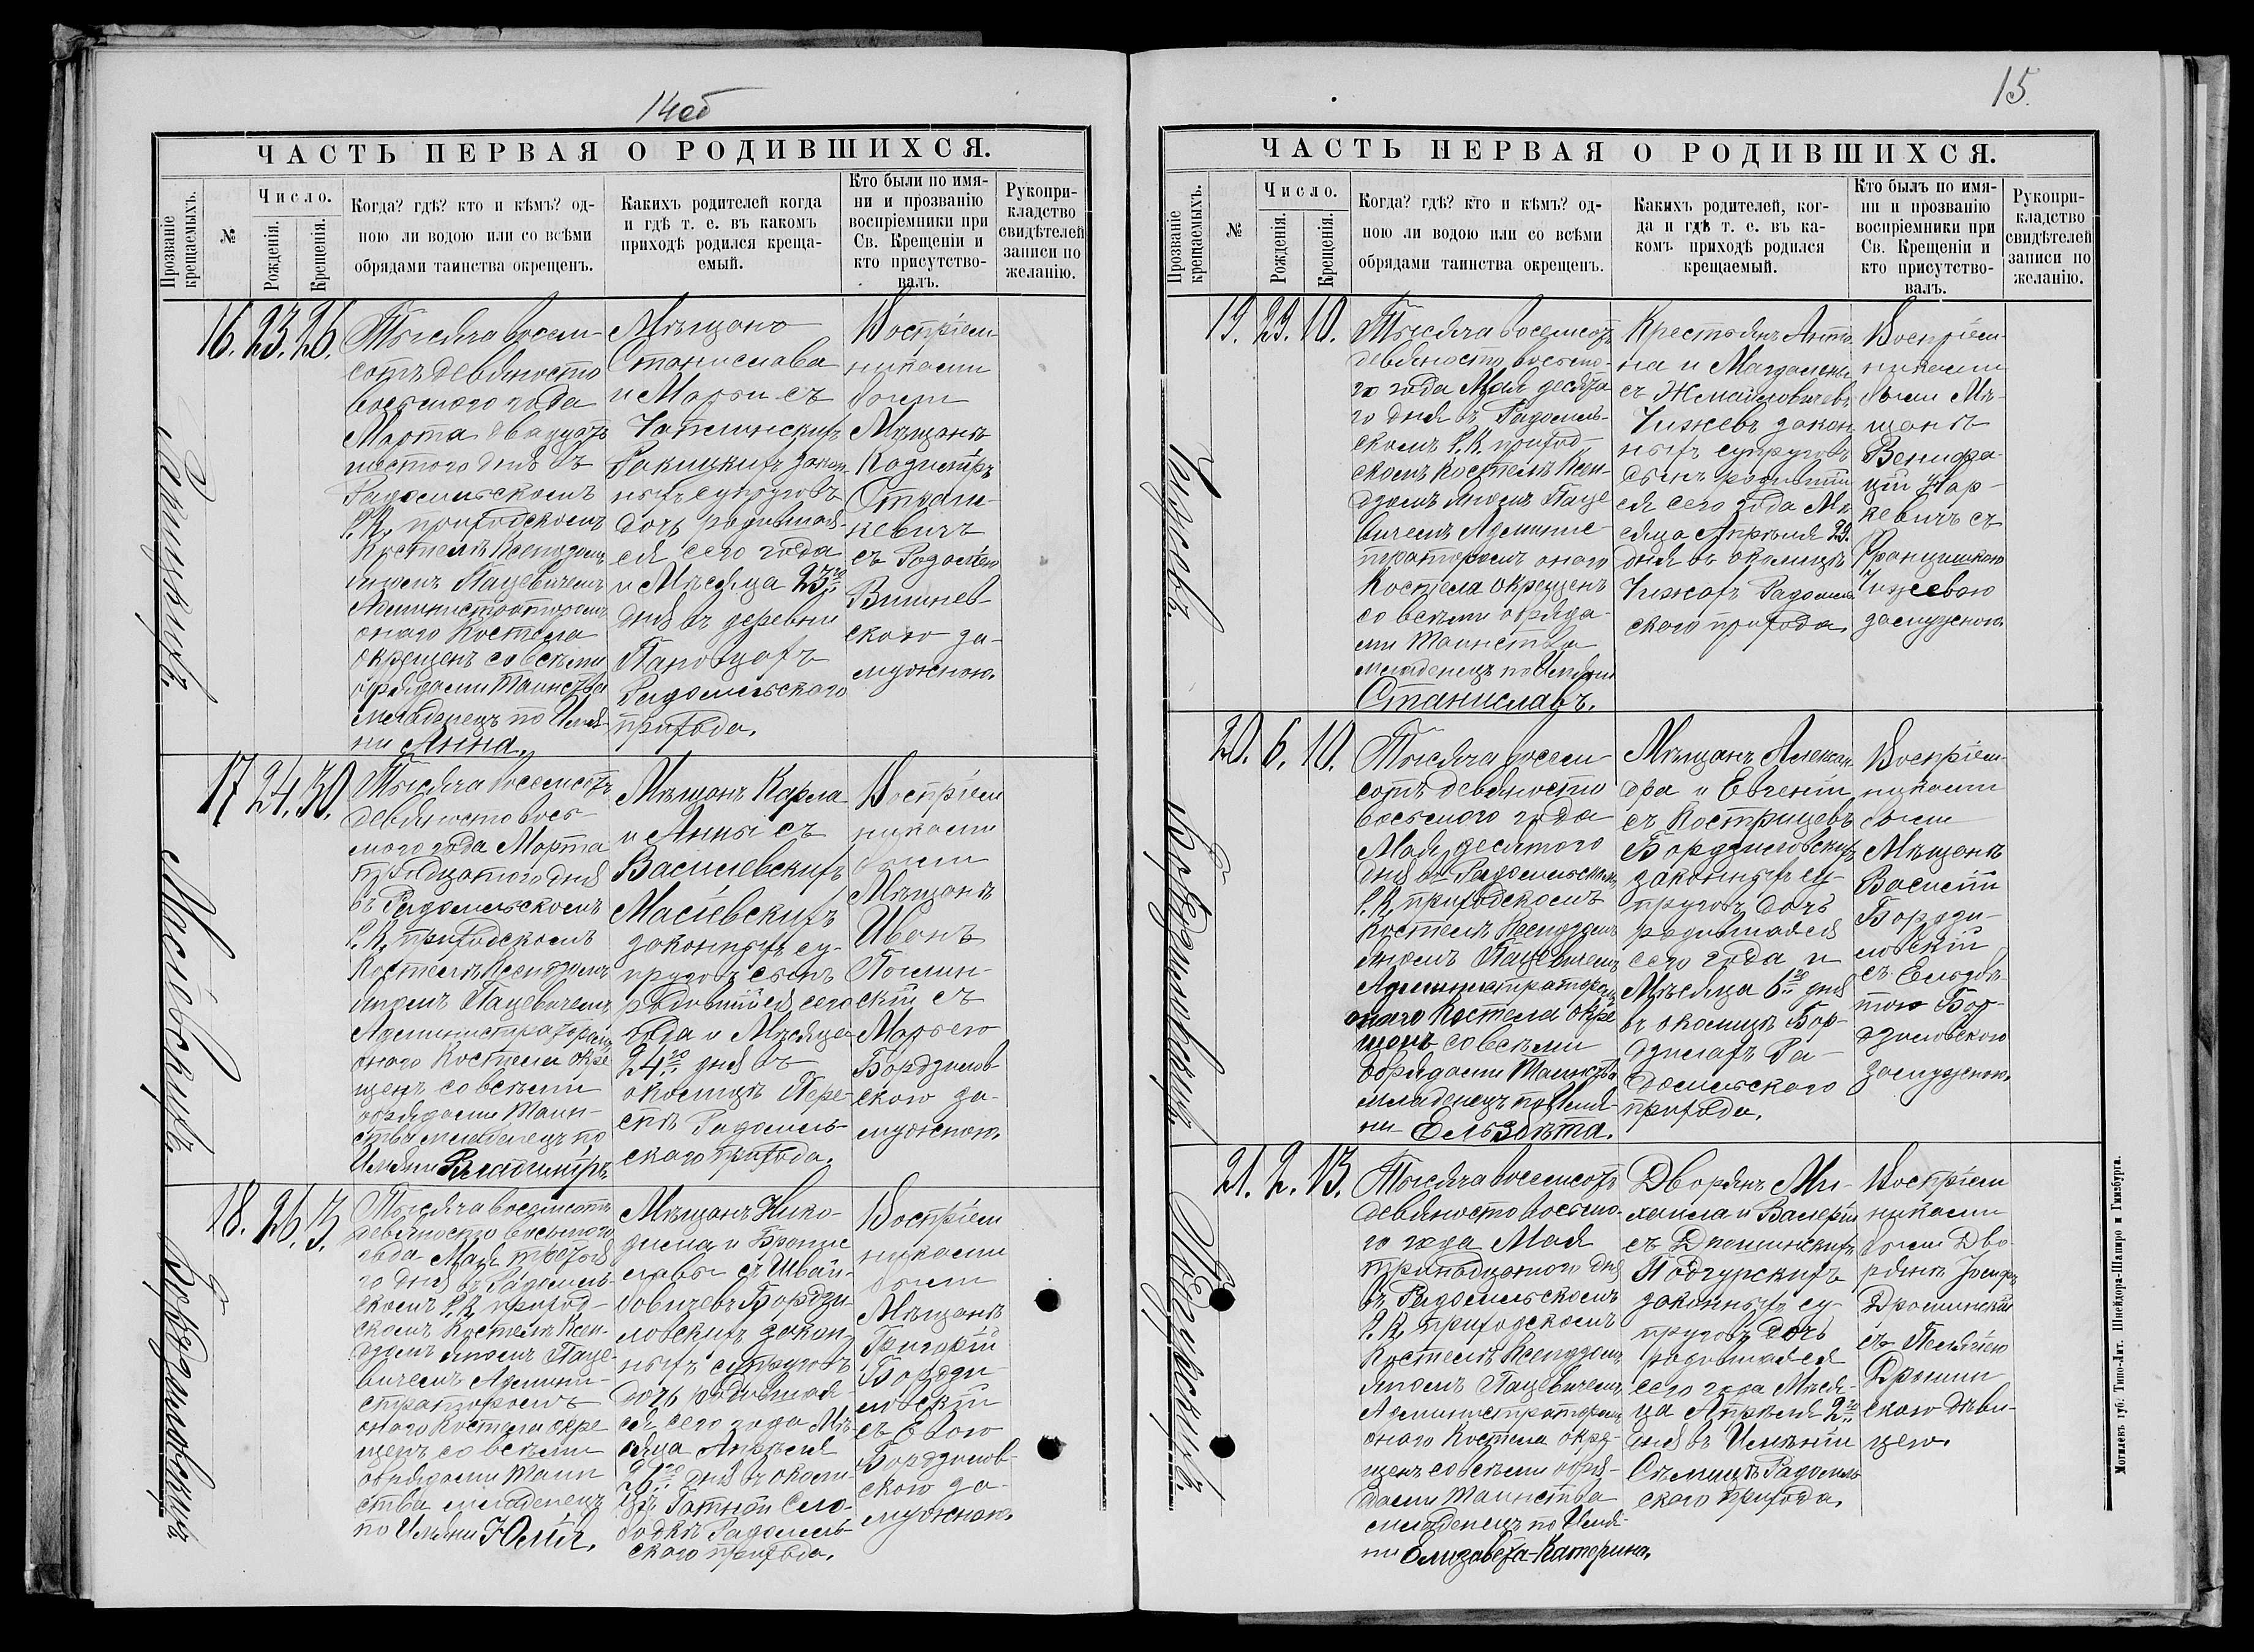 14об
ЧАСТЬ ПЕРВАЯ О РОДИВШИХСЯ.
Прозваніе крещаемыхъ.
№
Число.
Рожденія.
Крещенія.
Когда? гдѣ? кто и кѣмъ? од-
ною ли водою или со всѣми
обрядами таинства окрещенъ.
Какихъ родителей когда
и гдѣ т. е. въ какомъ
приходѣ родился креща-
емый.
Кто были по имя-
ни и прозванію
воспріемники при
Св. Крещеніи и
кто присутство-
валъ.
Рукопри-
кладство
свидѣтелей
записи по
желанію.
16. 23. 26.
Тысяча восем-
сотъ девяносто
восьмого года
Марта двадцать
шестого дня въ
Радомльскомъ
Р.К. приходскомъ
Костелѣ Ксендзомъ
Пацевичемъ
Администраторомъ
онаго Костела
окрещенъ со всѣми
обрядами Таинства
младенецъ по Имя-
ни Анна.
Мѣщанъ
Станислава
и Марьи съ
Ракицкихъ закон-
ныхъ супруговъ
дочь родившая-
ся сего года
и Мѣсяца 23го
дня въ деревни
Радомльского
прихода.
Воспріем-
никами
были
Мѣщанъ
Казимiръ
съ
Вишнев-
скою за-
мужною.
17 24. 30.
Масіевскихъ
Тысяча восемсотъ
девяносто вось-
мого года Марта
тридцатого дня
въ Радомльскомъ
Р.К. приходскомъ
Костелѣ Ксендзомъ
Пацевичемъ
Администраторомъ
онаго Костела окре-
щенъ со всѣми
обрядами Таин-
ства младенецъ по
Имяни Владимiръ.
Мѣщанъ Карла
и Анны съ
Василевскихъ
Масіевскихъ
законныхъ су-
пруговъ сынъ
родившійся сего
года и Мѣсяца
24го дня въ
околицѣ Пере-
сѣкѣ Радомль-
ского прихода.
Воспріем-
никами
были
Мѣщанъ
Иванъ
съ
Марьею
Бордзилов-
скою за-
мужною.
18. 26. 3.
Бордзиловскихъ
Тысяча восемсотъ
девяносто восьмого
года Мая третья-
го дня въ Радомль-
скомъ Р.К. приход-
скомъ Костелѣ Ксен-
дзомъ Паце-
вичемъ Админи-
страторомъ
онаго Костела окре-
щенъ со всѣми
обрядами Таин-
ства младенецъ
по Имяни Юлія.
Мѣщанъ Нико-
дима и Бронис-
лавы съ
Бордзи-
ловскихъ закон-
ныхъ супруговъ
дочь родившая-
ся сего года Мѣ-
сяца Апрѣля
26го дня въ околи-
цѣ Гатной Сло-
бодкѣ Радомль-
ского прихода.
Воспріем-
никами
были
Мѣщанъ
Григорій
Бордзи-
ловскій
съ Евою
Бордзилов-
скою за-
мужною.
15.
ЧАСТЬ ПЕРВАЯ О РОДИВШИХСЯ.
Прозваніе крещаемыхъ.
№
Число.
Рожденія.
Крещенія.
Когда? гдѣ? кто и кѣмъ? од-
ною ли водою или со всѣми
обрядами таинства окрещенъ.
Какихъ родителей, ког-
да и гдѣ т. е. въ ка-
комъ приходѣ родился
крещаемый.
Кто былъ по имя-
ни и прозванію
воспріемники при
Св. Крещеніи и
кто присутство-
валъ.
Рукопри-
кладство
свидѣтелей
записи по
желанію.
19. 29. 10.
Чижевъ.
Тысяча восемсотъ
девяносто восьмо-
го года Мая десято-
го дня въ Радомль-
скомъ Р.К. приход-
скомъ Костелѣ Ксен-
дзомъ Паце-
вичемъ Админис-
траторомъ онаго
Костела окрещенъ
со всѣми обряда-
ми Таинства
младенецъ по Имяни
Станиславъ.
Крестьянъ Анто-
на и Магдалены
съ
Чижевъ закон-
ныхъ супруговъ
сынъ родившій-
ся сего года Мѣ-
сяца Апрѣля 29.
дня въ околицѣ
Чижахъ Радомль-
ского прихода.
Воспріем-
никами
были Мѣ-
щанъ
Венифа-
цій Жар-
кевичъ съ
Францишкою
Чижевою
замужною.
20. 6. 10.
Бордзиловскихъ.
Тысяча восем-
сотъ девяносто
восьмого года
Мая десятого
дня въ Радомльскомъ
Р.К. приходскомъ
Костелѣ Ксендзомъ
Пацевичемъ
Администраторомъ
онаго Костела окре-
щенъ со всѣми
обрядами Таинства
младенецъ по Имя-
ни Ельзбѣта.
Мѣщанъ Алексан-
дра и Евгеніи
съ Кострицевъ
Бордзиловскихъ
законныхъ су-
пруговъ дочь
родившаяся
сего года и
Мѣсяца 6го дня
въ околицѣ Бор-
дзилахъ Ра-
домльского
прихода.
Воспріем-
никами
были
Мѣщанъ
Василій
Бордзи-
ловскій
съ Ельзбѣ-
тою Бор-
дзиловскою
замужною.
21. 2. 13.
Подгурскихъ.
Тысяча восемсотъ
девяносто восьмо-
го года Мая
тринадцатого дня
въ Радомльскомъ
Р.К. приходскомъ
Костелѣ Ксендзомъ
Пацевичемъ
Администраторомъ
онаго Костела окре-
щенъ со всѣми обря-
дами Таинства
младенецъ по Имя-
ни Елизавета-Катерина.
Дворянъ Ми-
хаила и Валеріи
съ
Подгурскихъ
законныхъ су-
пруговъ дочь
родившаяся
сего года Мѣся-
ца Апрѣля 2го
дня въ Имѣніи
Радомль-
ского прихода.
Воспріем-
никами
были Дво-
рянъ Іосифъ
съ
скою дѣви-
цею.
Могилевъ губ: Типо-Лит. Шнейдора-Шапиро и Гинзбурга.